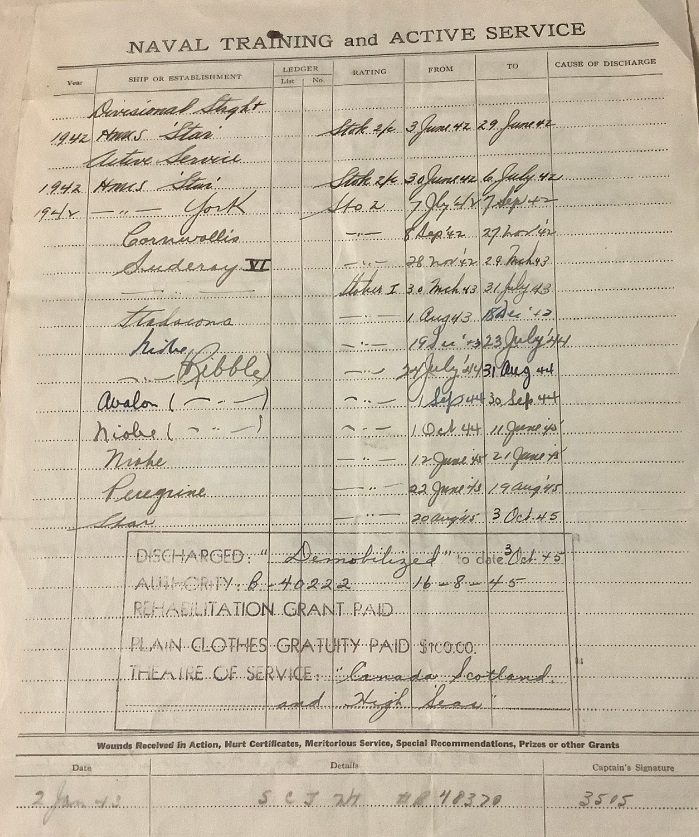 NAVAL TRAINING and ACTIVE SERVICE
Year SHIP OR ESTABLISHMENT LEDGER List No. RATING FROM TO CAUSE OF DISCHARGE
Divisional Strgt
1942 HMCS Star Stok 2/c 3 June 42 29 June 42
Active Service
1942 HMCS Star Stok 2/c 30 June 42 6 July 42
1942 —"— York Sto 2 7 Jly 42 7 Sep 42
Cornwallis —"— 8 Sep '42 27 Nov '42
Suderoy VI —"— 28 Nov '42 29 Mch 43
— — Stoker I 30 Mch 43 31 July 43
Stadacona —"— 1 Aug 43 18 Dec '43
Niobe —"— 19 Dec '43 23 July '44
—"— (Ribble) —"— 24 July '44 31 Aug 44
Avalon ( —"— ) —"— 1 Sep 44 30 Sep 44
Niobe ( —"— ) —"— 1 Oct 44 11 June '45
Niobe —"— 12 June 45 21 June '45
Peregrine —"— 22 June '45 19 Aug '45
Star —"— 20 Aug '45 3 Oct 45
DISCHARGED: "Demobilized" to date 3 Oct 45
AUTHORITY: B-40222 16-8-45
REHABILITATION GRANT PAID
PLAIN CLOTHES GRATUITY PAID $100.00.
THEATRE OF SERVICE: "Canada Scotland
and High Seas"
Wounds Received in Action, Hurt Certificates, Meritorious Service, Special Recommendations, Prizes or other Grants
Date Details Captain's Signature
2 Jan 43 48370 3505